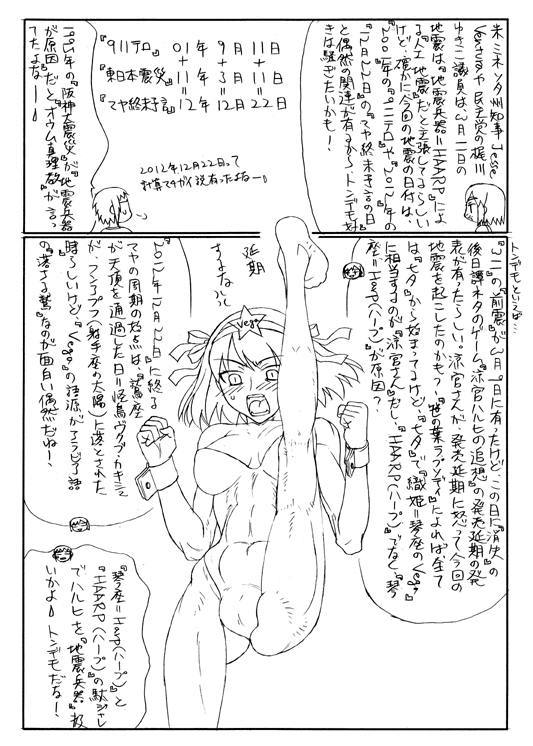 米ミネソタ州知事Jesse
Venturaや民主党の梶川
ゆきこ議員は3月11日の
地震は、『地震兵器=HAARP』によ
る『人工地震』だと主張してるらしい
けど、確かに今回の地震の日付は、
2001年の『911テロ』や2012年の
『12月22日の『マヤ終末予言の日』
と偶然の関連が有るから、トンデモ好
きは騒ぎたいかも!
『911テロ』 01年 9月 11日
+ + +
『東日本震災』 11年 3月 11日
= = =
『マヤ終末予言』=12年 12月 22日
2012年12月22日って
計算マチガイ説有ったよなー
1995年の『阪神大震災』が『地震兵器
が原因』だと『オウム真理教』が言っ
てたよなー
トンデモといえば…
『311』の『前震』が3月9日に有ったけど、この日に『消失』の
後日譚ネタのゲーム『涼宮ハルヒの追想』の発売延期の発
表が有ったらしい。涼宮さんが、発売延期に怒って今回の
地震を起こしたのかも?『笹の葉ラプソディ』によれば、全て
は『七夕』から始まってるけど、『七夕』で『織姫=琴座のVega』
に相当するのが『涼宮さん』だし、『HAARP(ハープ)』でなく、『琴
座=Harp(ハープ)』が原因?
延期
さすなぁ
Vega
『2012年12月22日』に終る
マヤの周期の始点は、『鷲座
が天頂を通過した日=怪鳥ヴクブ・カキシュ
が、フンアフプ(射手座の太陽)に落とされた
時』らしいけど、『Vega』の語源がアラビア語
の『落ちる鷲』なのが面白い偶然だねー!
『琴座=Harp(ハープ)』と
『HAARP(ハープ)』の駄ジャレ
でハルヒを『地震兵器』扱
いかよ トンデモだなー!